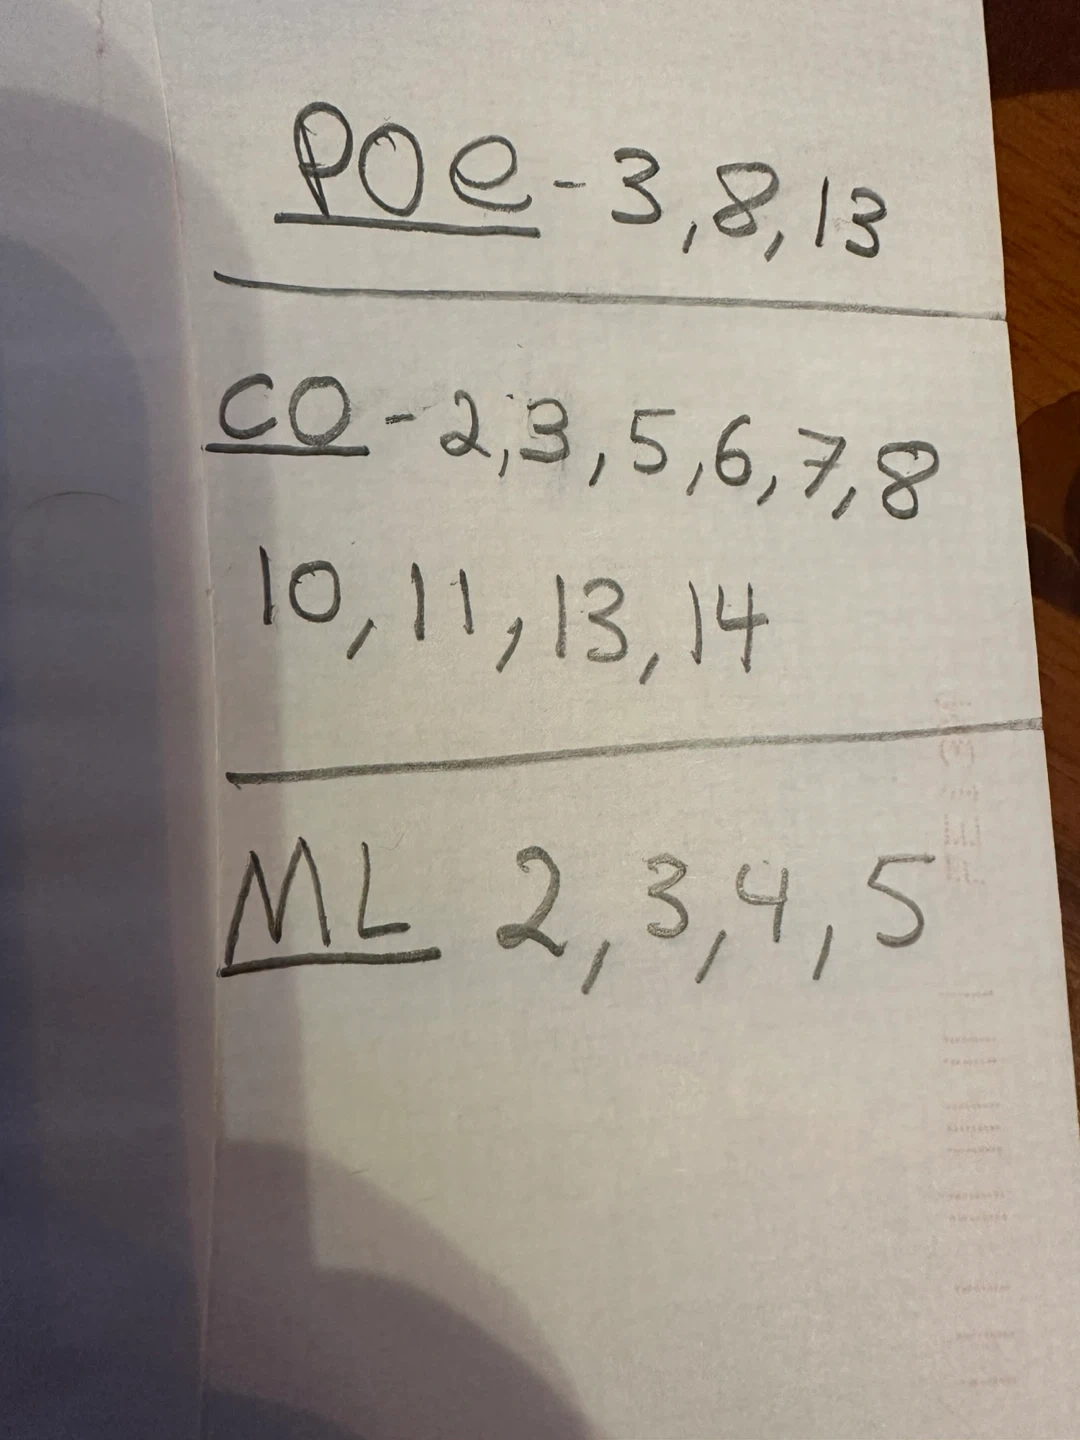 POe - 3, 8, 13
CO - 2, 3, 5, 6, 7, 8
10, 11, 13, 14
ML 2, 3, 4, 5